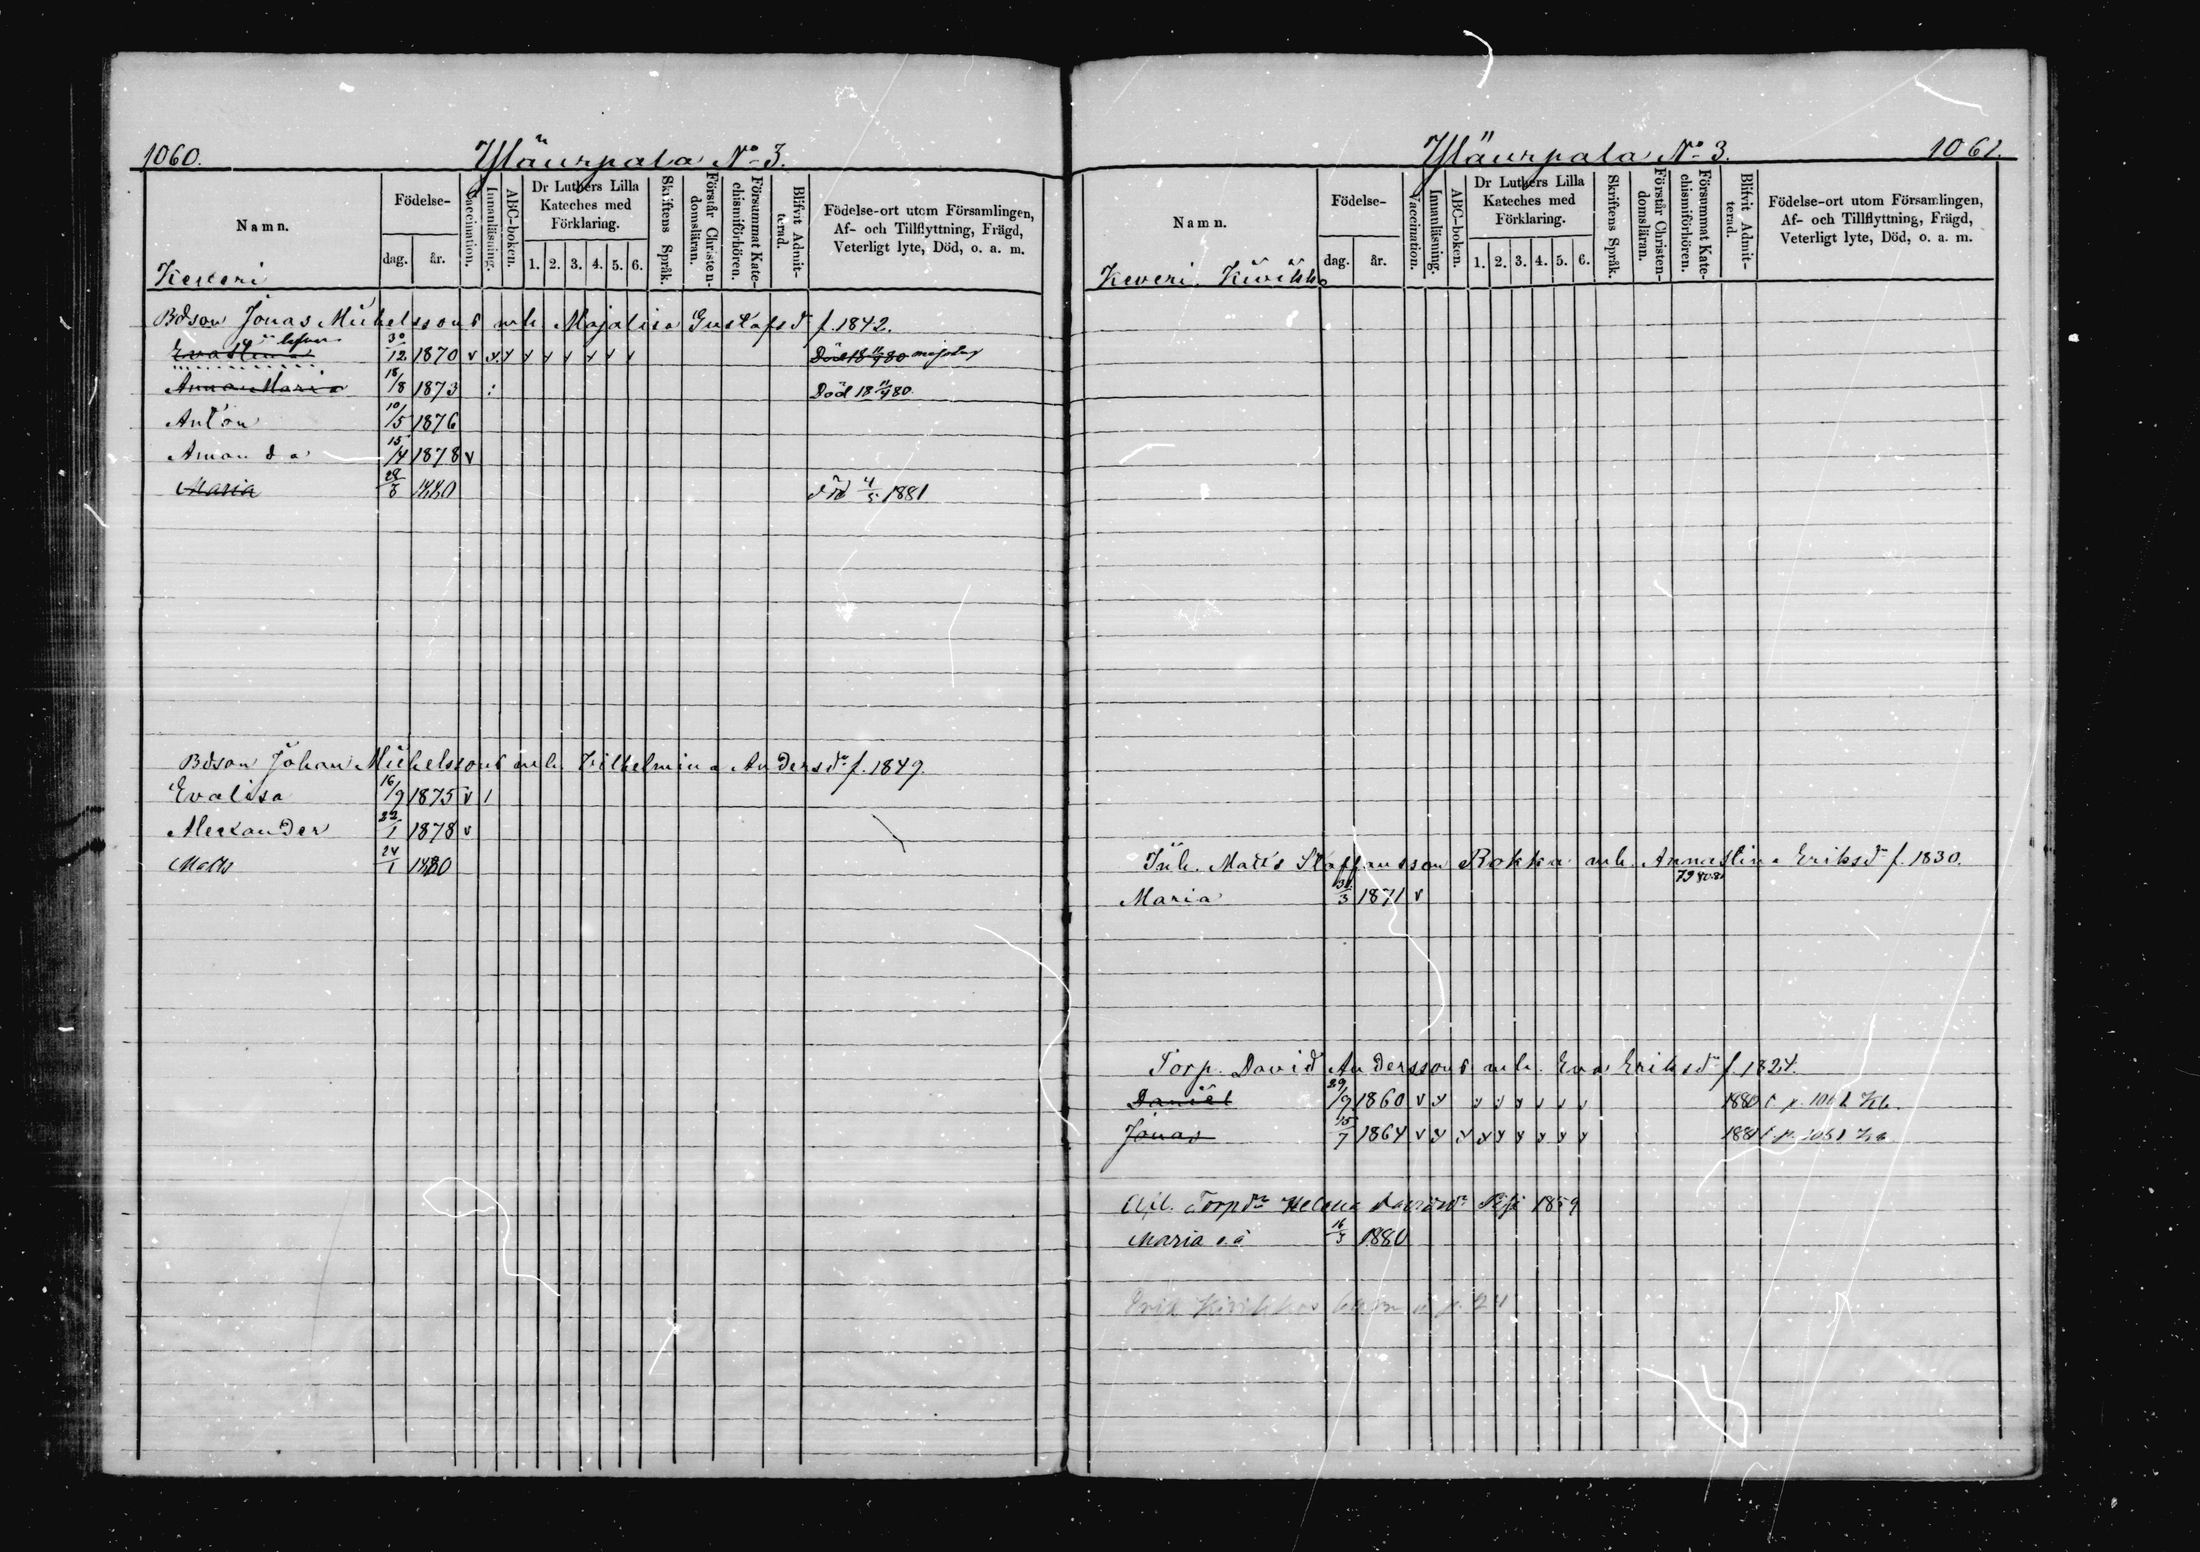 1060.
Yläurpala No 3.
Namn.
Födelse-
dag.
år.
Vaccination.
Innanläsning.
ABC-boken.
Dr Luthers Lilla
Kateches med
Förklaring.
1. 2. 3. 4. 5. 6.
Skriftens Språk.
Förstår Christen-
domsläran.
Försummat Kate-
chismiförhören.
Blifvit Admit-
terad.
Födelse-ort utom Församlingen,
Af- och Tillflyttning, Frägd,
Veterligt lyte, Död, o. a. m.
Keveri
Bdson Jonas Michelssons mh. Majalisa Gustafsdr f. 1842.
Evastina 30/12 1870 v v v v v v v v v Död 18 11/9 80
Anna Maria 18/8 1873 Död 18 11/9 80.
Anton 10/5 1876
Amanda 15/4 1878 v
Maria 28/8 1880 död 4/5 1881
Bdson Johan Michelssons mh. Vilhelmina Andersdr f. 1849.
Evalisa 16/9 1875 v 1
Alexander 22/1 1878 v
Matts 24/1 1880
Yläurpala No 3.
1061.
Namn.
Födelse-
dag.
år.
Vaccination.
Innanläsning.
ABC-boken.
Dr Luthers Lilla
Kateches med
Förklaring.
1. 2. 3. 4. 5. 6.
Skriftens Språk.
Förstår Christen-
domsläran.
Försummat Kate-
chismiförhören.
Blifvit Admit-
terad.
Födelse-ort utom Församlingen,
Af- och Tillflyttning, Frägd,
Veterligt lyte, Död, o. a. m.
Keveri. Kivikko
Inh. Matts Staffansson Rokka mh. Annastina Eriksdr f. 1830.
79 80.81
Maria 1871 v
Torp. David Anderssons mh. Eva Eriksdr f. 1824.
Daniel 29/9 1860 v v v v v v v v 1880 p. 1061 Kb.
Jonas 15/7 1864 v v v v v v v v v 1881
Torpdr Helena Davidsdr 1859
Maria o.ä 16/3 1880
Erik Kivikkos p. 24